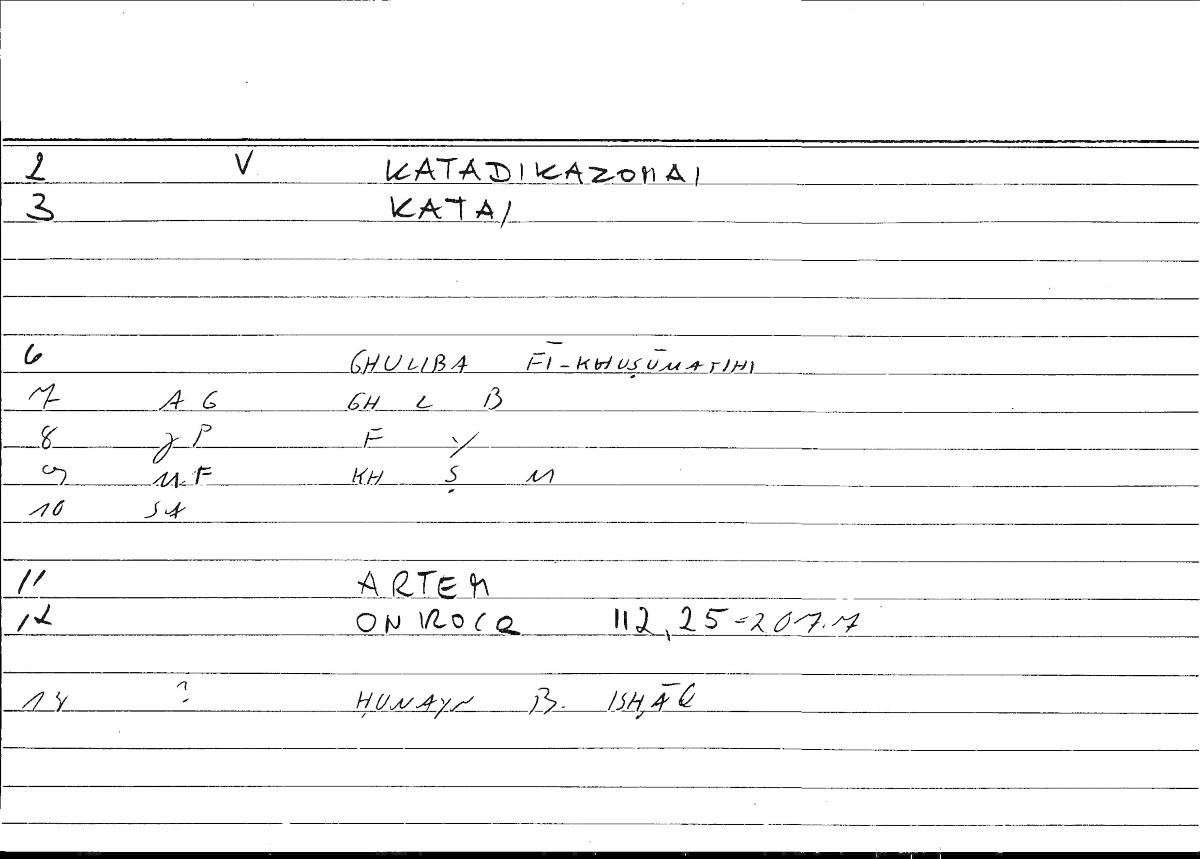 2 V KATADIKAZOMAI
3 KATA/
6 GHULIBA FĪ-KHUṢŪMATIHI
7 AG GH L B
8 JP F Y
9 MF KH Ṣ M
10 SA
11 ARTEM
12 ONIROCR 112,25=207.7
14 ? ḤUNAYN B. ISḤĀQ